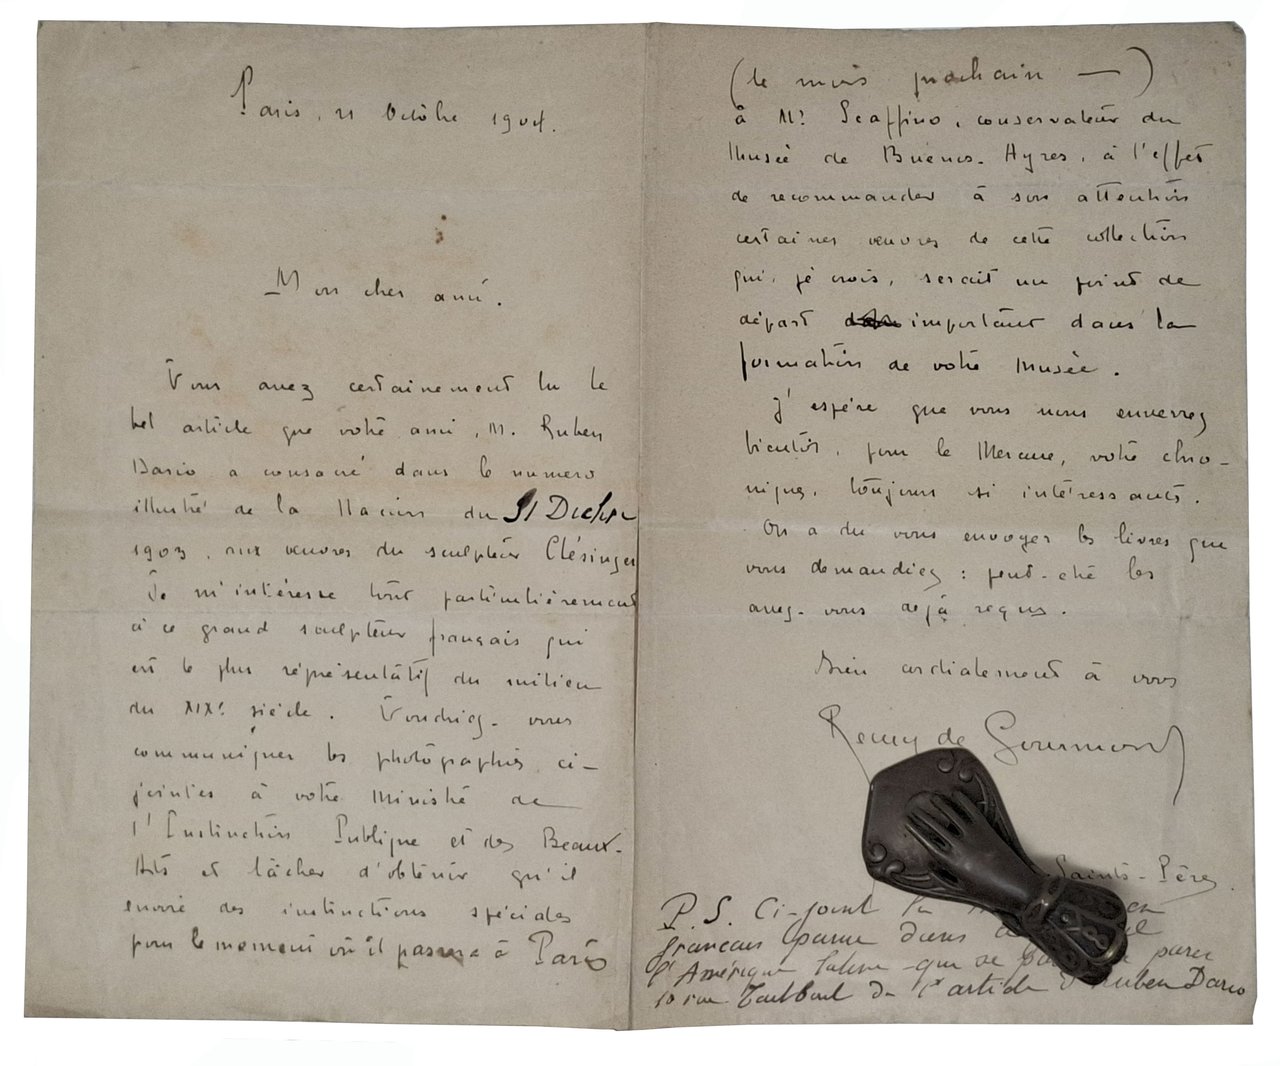 Paris, 21 Octobre 1904.
Mon cher ami.
Vous avez certainement lu le
bel article que votre ami, M. Ruben
Dario a consacré dans le numero
illustré de la Nacion du 31 Decbre
1903, aux œuvres du sculpteur Clésinger
Je m'intéresse tout particulièrement
à ce grand sculpteur français qui
est le plus représentatif du milieu
du XIXe siècle. Voudriez-vous
communiquer les photographies ci-
jointes à votre Ministre de
l'Instruction Publique et des Beaux-
Arts et tâcher d'obtenir qu'il
envoie des instructions spéciales
pour le moment où il passera à Paris
(le mois prochain —)
à Mr Sciaffino, conservateur du
Musée de Buenos-Ayres, à l'effet
de recommander à son attention
certaines œuvres de cette collection
qui, je crois, serait un point de
départ important dans la
formation de votre Musée.
J'espère que vous nous enverrez
bientôt, pour le Mercure, votre chro-
nique, toujours si intéressante.
On a du vous envoyer les livres que
vous demandiez : peut-être les
avez-vous déjà reçus.
Bien cordialement à vous
Remy de Gourmont
Saints-Pères.
P.S. Ci-joint la en
francais parue dans
l'Amérique latine que se
10 rue Taitbout de l'article Ruben Dario